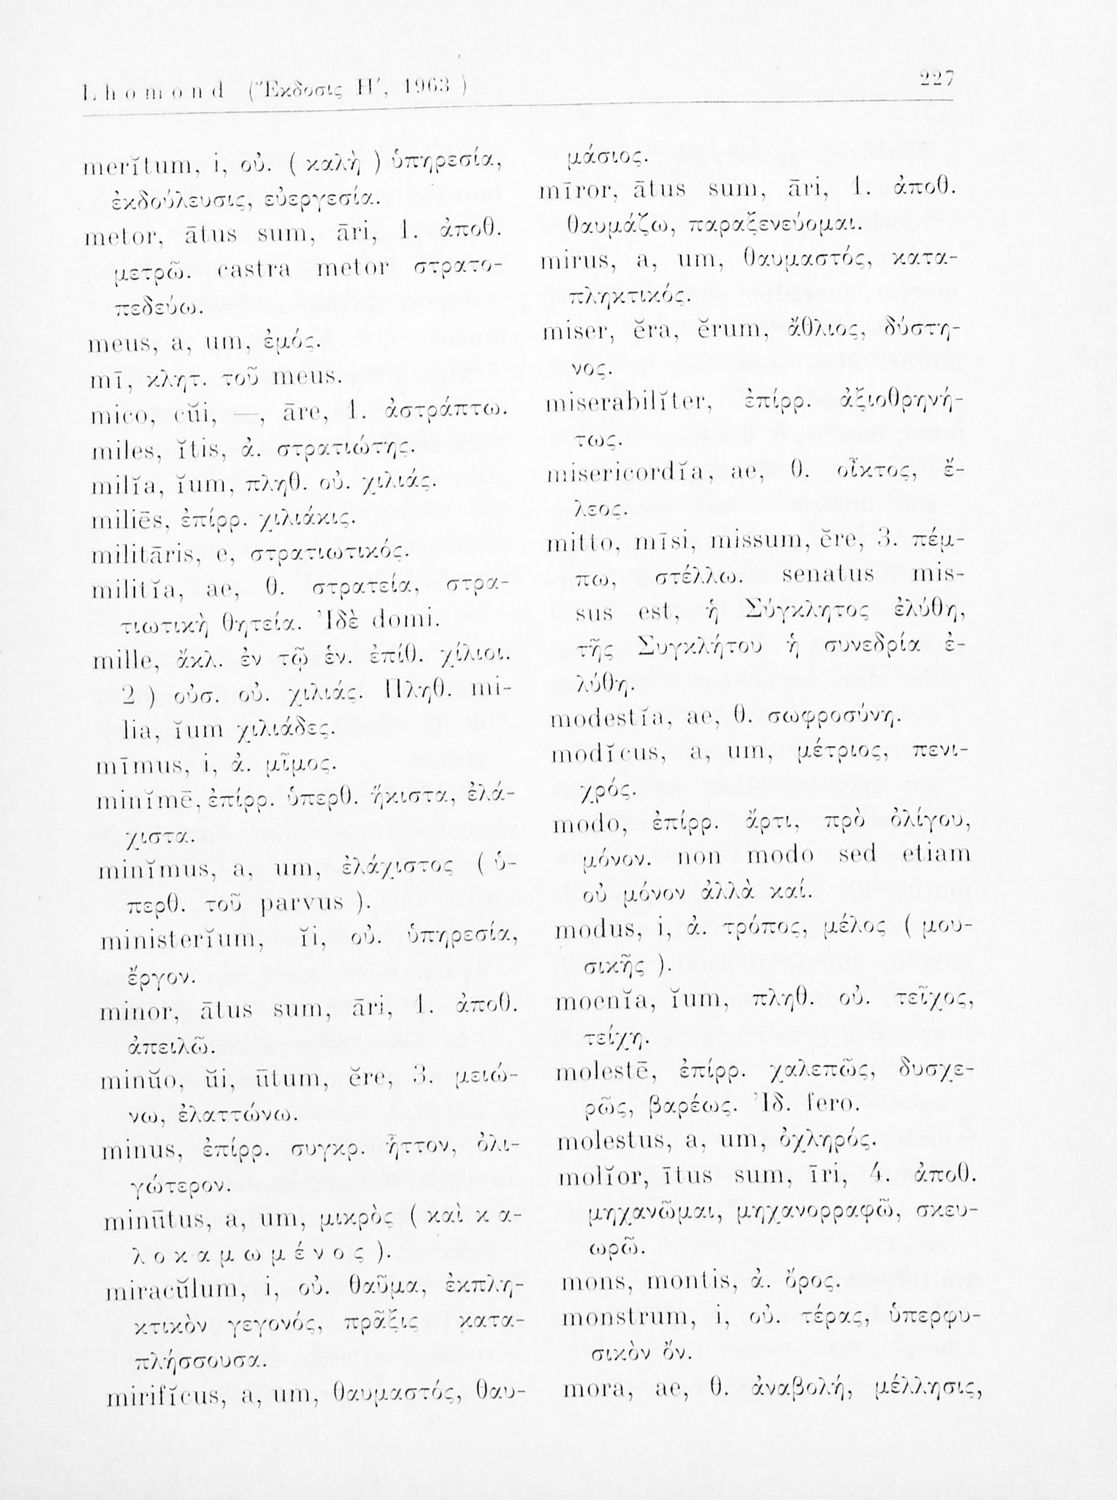 Lhomond (Ἔκδοσις Η΄, 1963)
227
merĭtum, i, οὐ. ( καλὴ ) ὑπηρεσία,
ἐκδούλευσις, εὐεργεσία.
metor, ātus sum, āri, 1. ἀποθ.
μετρῶ. castra metor στρατο-
πεδεύω.
meus, a, um, ἐμός.
mī, κλητ. τοῦ meus.
mico, cŭi, —, āre, 1. ἀστράπτω.
miles, ĭtis, ἀ. στρατιώτης.
milĭa, ĭum, πληθ. οὐ. χιλιάς.
miliēs, ἐπίρρ. χιλιάκις.
militāris, e, στρατιωτικός.
militĭa, ae, θ. στρατεία, στρα-
τιωτικὴ θητεία. Ἰδὲ domi.
mille, ἄκλ. ἐν τῷ ἑν. ἐπίθ. χίλιοι.
2 ) οὐσ. οὐ. χιλιάς. Πληθ. mi-
lia, ĭum χιλιάδες.
mīmus, i, ἀ. μῖμος.
minĭmē, ἐπίρρ. ὑπερθ. ἥκιστα, ἐλά-
χιστα.
minĭmus, a, um, ἐλάχιστος ( ὑ-
περθ. τοῦ parvus ).
ministerĭum, ĭi, οὐ. ὑπηρεσία,
ἔργον.
minor, ātus sum, āri, 1. ἀποθ.
ἀπειλῶ.
minŭo, ŭi, ūtum, ĕre, 3. μειώ-
νω, ἐλαττώνω.
minus, ἐπίρρ. συγκρ. ἧττον, ὀλι-
γώτερον.
minūtus, a, um, μικρὸς ( καὶ κ α-
λ ο κ α μ ω μ έ ν ο ς ).
miracŭlum, i, οὐ. θαῦμα, ἐκπλη-
κτικὸν γεγονός, πρᾶξις κατα-
πλήσσουσα.
mirifĭcus, a, um, θαυμαστός, θαυ-
μάσιος.
mīror, ātus sum, āri, 1. ἀποθ.
θαυμάζω, παραξενεύομαι.
mirus, a, um, θαυμαστός, κατα-
πληκτικός.
miser, ĕra, ĕrum, ἄθλιος, δύστη-
νος.
miserabilĭter, ἐπίρρ. ἀξιοθρηνή-
τως.
misericordĭa, ae, θ. οἶκτος, ἔ-
λεος.
mitto, mīsi, missum, ĕre, 3. πέμ-
πω, στέλλω. senatus mis-
sus est, ἡ Σύγκλητος ἐλύθη,
τῆς Συγκλήτου ἡ συνεδρία ἐ-
λύθη.
modestĭa, ae, θ. σωφροσύνη.
modĭcus, a, um, μέτριος, πενι-
χρός.
modo, ἐπίρρ. ἄρτι, πρὸ ὀλίγου,
μόνον. non modo sed etiam
οὐ μόνον ἀλλὰ καί.
modus, i, ἀ. τρόπος, μέλος ( μου-
σικῆς ).
moenĭa, ĭum, πληθ. οὐ. τεῖχος,
τείχη.
molestē, ἐπίρρ. χαλεπῶς, δυσχε-
ρῶς, βαρέως. Ἰδ. fero.
molestus, a, um, ὀχληρός.
molĭor, ītus sum, īri, 4. ἀποθ.
μηχανῶμαι, μηχανορραφῶ, σκευ-
ωρῶ.
mons, montis, ἀ. ὄρος.
monstrum, i, οὐ. τέρας, ὑπερφυ-
σικὸν ὄν.
mora, ae, θ. ἀναβολή, μέλλησις,